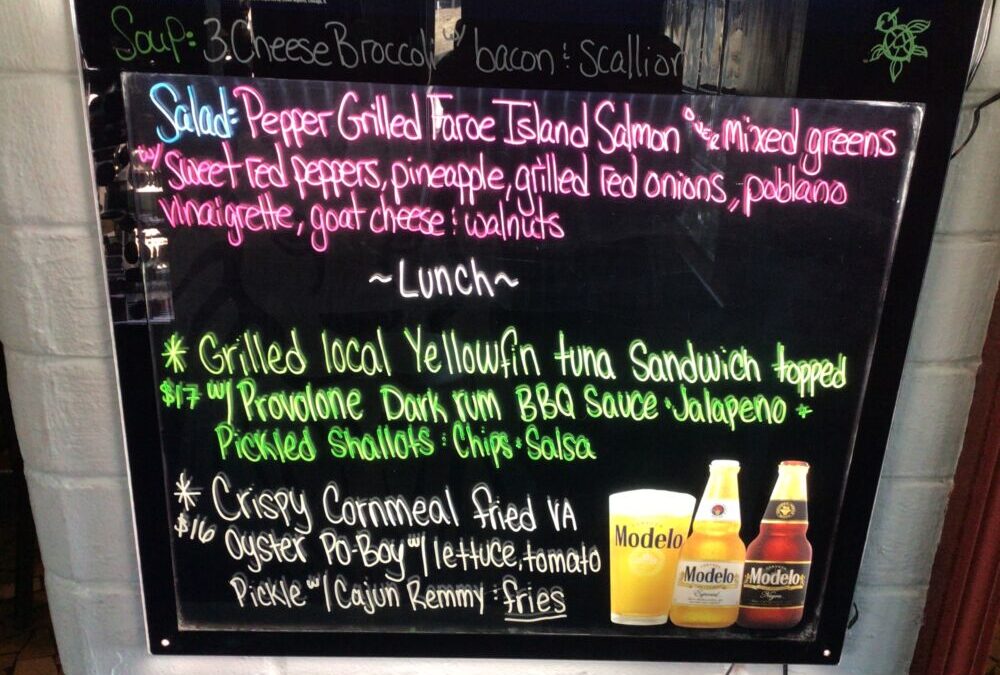 Soup: 3 Cheese Broccoli w/ bacon & Scallion
Salad: Pepper Grilled Faroe Island Salmon over mixed greens
w/ sweet red peppers, pineapple, grilled red onions, poblano
vinaigrette, goat cheese & walnuts
~Lunch~
* Grilled local Yellowfin tuna Sandwich topped
$17 w/ Provolone Dark rum BBQ Sauce Jalapeno +
Pickled Shallots & Chips & Salsa
* Crispy Cornmeal fried VA
$16 Oyster Po-Boy w/ lettuce, tomato
Pickle w/ Cajun Remmy & fries
Modelo
Modelo
Especial
Modelo
Negra